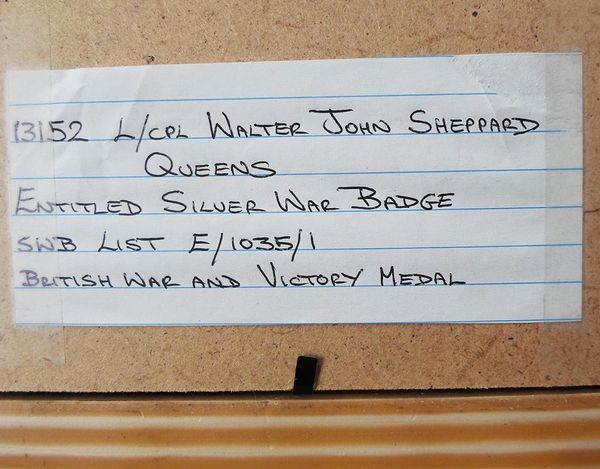 13152 L/CPL WALTER JOHN SHEPPARD
QUEENS
ENTITLED SILVER WAR BADGE
SWB LIST E/1035/1
BRITISH WAR AND VICTORY MEDAL